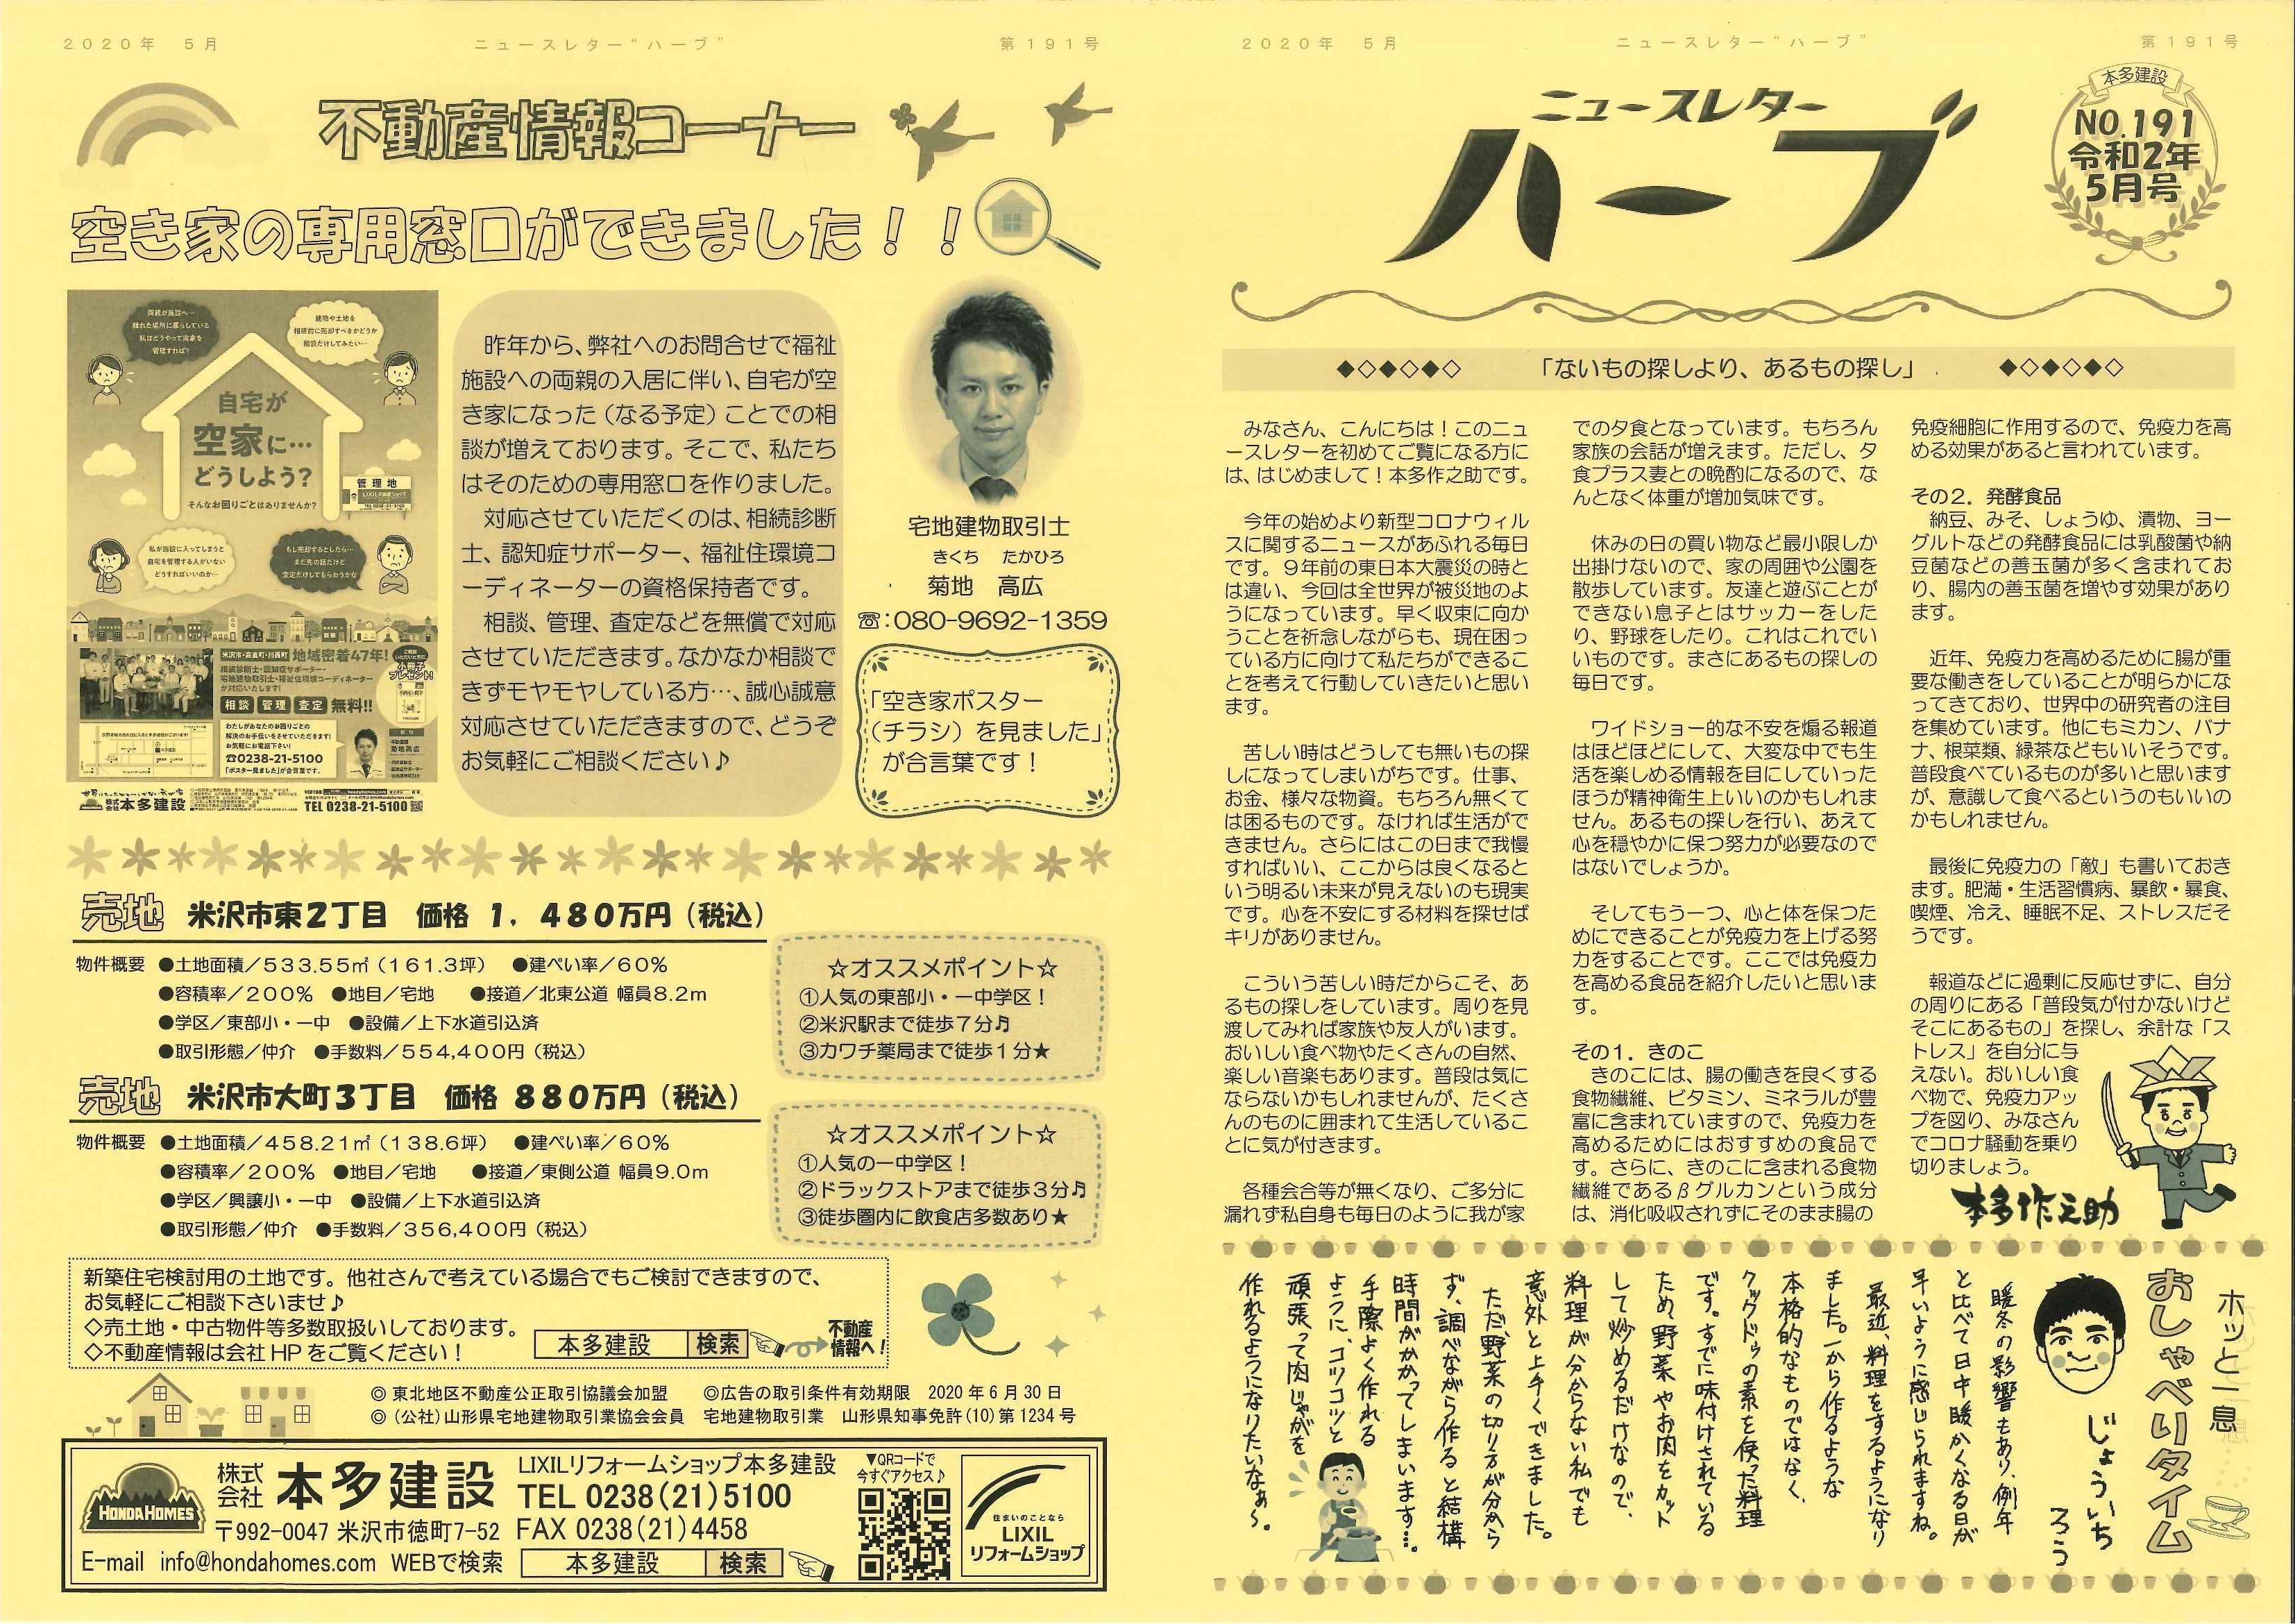 2020年　5月
ニュースレター“ハーブ”
第191号
不動産情報コーナー
空き家の専用窓口ができました！！
両親が施設へ…
離れた場所に暮らしている
私はどうやって実家を
管理すれば?
建物や土地を
相続前に売却すべきかどうか
相談だけしてみたい…
自宅が
空家に…
どうしよう?
そんなお困りごとはありませんか?
管理地
私が施設に入ってしまうと
自宅を管理する人がいない
どうすればいいのか…
もし売却するとしたら…
まだ先の話だけど
査定だけしてもらおうかな
米沢市・高畠町・川西町 地域密着47年!
相続診断士・認知症サポーター・
宅地建物取引士・福祉住環境コーディネーター
が対応いたします!
小冊子
プレゼント!
相談 管理 査定 無料!!
わたしがあなたのお困りごとの
解決のお手伝いをさせていただきます!
お気軽にお電話下さい!
☎0238-21-5100
「ポスター見ました」が合言葉です。
菊地高広
株式会社本多建設
TEL 0238-21-5100
昨年から、弊社へのお問合せで福祉
施設への両親の入居に伴い、自宅が空
き家になった（なる予定）ことでの相
談が増えております。そこで、私たち
はそのための専用窓口を作りました。
対応させていただくのは、相続診断
士、認知症サポーター、福祉住環境コ
ーディネーターの資格保持者です。
相談、管理、査定などを無償で対応
させていただきます。なかなか相談で
きずモヤモヤしている方…、誠心誠意
対応させていただきますので、どうぞ
お気軽にご相談ください♪
宅地建物取引士
きくち　たかひろ
菊地　高広
☎:080-9692-1359
「空き家ポスター
（チラシ）を見ました」
が合言葉です！
売地　米沢市東2丁目　価格 1，480万円（税込）
物件概要　●土地面積／533.55㎡（161.3坪）　●建ぺい率／60%
●容積率／200%　●地目／宅地　●接道／北東公道 幅員8.2m
●学区／東部小・一中　●設備／上下水道引込済
●取引形態／仲介　●手数料／554,400円（税込）
☆オススメポイント☆
①人気の東部小・一中学区！
②米沢駅まで徒歩7分♬
③カワチ薬局まで徒歩1分★
売地　米沢市大町3丁目　価格 880万円（税込）
物件概要　●土地面積／458.21㎡（138.6坪）　●建ぺい率／60%
●容積率／200%　●地目／宅地　●接道／東側公道 幅員9.0m
●学区／興譲小・一中　●設備／上下水道引込済
●取引形態／仲介　●手数料／356,400円（税込）
☆オススメポイント☆
①人気の一中学区！
②ドラックストアまで徒歩3分♬
③徒歩圏内に飲食店多数あり★
新築住宅検討用の土地です。他社さんで考えている場合でもご検討できますので、
お気軽にご相談下さいませ♪
◇売土地・中古物件等多数取扱いしております。
◇不動産情報は会社HPをご覧ください！
本多建設　検索
不動産
情報へ!
◎東北地区不動産公正取引協議会加盟　◎広告の取引条件有効期限　2020年6月30日
◎（公社）山形県宅地建物取引業協会会員　宅地建物取引業　山形県知事免許(10)第1234号
HONDA HOMES
株式会社 本多建設
〒992-0047 米沢市徳町7-52
LIXILリフォームショップ本多建設
TEL 0238(21)5100
FAX 0238(21)4458
E-mail info@hondahomes.com WEBで検索　本多建設　検索
▼QRコードで
今すぐアクセス♪
住まいのことなら
LIXIL
リフォームショップ
2020年　5月
ニュースレター“ハーブ”
第191号
ニュースレター
ハーブ
本多建設
NO.191
令和2年
5月号
◆◇◆◇◆◇　「ないもの探しより、あるもの探し」　◆◇◆◇◆◇
みなさん、こんにちは！このニュ
ースレターを初めてご覧になる方に
は、はじめまして！本多作之助です。
今年の始めより新型コロナウィル
スに関するニュースがあふれる毎日
です。9年前の東日本大震災の時と
は違い、今回は全世界が被災地のよ
うになっています。早く収束に向か
うことを祈念しながらも、現在困っ
ている方に向けて私たちができるこ
とを考えて行動していきたいと思い
ます。
苦しい時はどうしても無いもの探
しになってしまいがちです。仕事、
お金、様々な物資。もちろん無くて
は困るものです。なければ生活がで
きません。さらにはこの日まで我慢
すればいい、ここからは良くなると
いう明るい未来が見えないのも現実
です。心を不安にする材料を探せば
キリがありません。
こういう苦しい時だからこそ、あ
るもの探しをしています。周りを見
渡してみれば家族や友人がいます。
おいしい食べ物やたくさんの自然、
楽しい音楽もあります。普段は気に
ならないかもしれませんが、たくさ
んのものに囲まれて生活しているこ
とに気が付きます。
各種会合等が無くなり、ご多分に
漏れず私自身も毎日のように我が家
での夕食となっています。もちろん
家族の会話が増えます。ただし、夕
食プラス妻との晩酌になるので、な
んとなく体重が増加気味です。
休みの日の買い物など最小限しか
出掛けないので、家の周囲や公園を
散歩しています。友達と遊ぶことが
できない息子とはサッカーをした
り、野球をしたり。これはこれでい
いものです。まさにあるもの探しの
毎日です。
ワイドショー的な不安を煽る報道
はほどほどにして、大変な中でも生
活を楽しめる情報を目にしていった
ほうが精神衛生上いいのかもしれま
せん。あるもの探しを行い、あえて
心を穏やかに保つ努力が必要なので
はないでしょうか。
そしてもう一つ、心と体を保つた
めにできることが免疫力を上げる努
力をすることです。ここでは免疫力
を高める食品を紹介したいと思いま
す。
その1．きのこ
きのこには、腸の働きを良くする
食物繊維、ビタミン、ミネラルが豊
富に含まれていますので、免疫力を
高めるためにはおすすめの食品で
す。さらに、きのこに含まれる食物
繊維であるβグルカンという成分
は、消化吸収されずにそのまま腸の
免疫細胞に作用するので、免疫力を高
める効果があると言われています。
その2．発酵食品
納豆、みそ、しょうゆ、漬物、ヨー
グルトなどの発酵食品には乳酸菌や納
豆菌などの善玉菌が多く含まれてお
り、腸内の善玉菌を増やす効果があり
ます。
近年、免疫力を高めるために腸が重
要な働きをしていることが明らかにな
ってきており、世界中の研究者の注目
を集めています。他にもミカン、バナ
ナ、根菜類、緑茶などもいいそうです。
普段食べているものが多いと思います
が、意識して食べるというのもいいの
かもしれません。
最後に免疫力の「敵」も書いておき
ます。肥満・生活習慣病、暴飲・暴食、
喫煙、冷え、睡眠不足、ストレスだそ
うです。
報道などに過剰に反応せずに、自分
の周りにある「普段気が付かないけど
そこにあるもの」を探し、余計な「ス
トレス」を自分に与
えない。おいしい食
べ物で、免疫力アッ
プを図り、みなさん
でコロナ騒動を乗り
切りましょう。
本多作之助
ホッと一息
おしゃべりタイム
じょういち
ろう
暖冬の影響もあり、例年
と比べて日中暖かくなる日が
早いように感じられますね。
最近、料理をするようになり
ました。一から作るような
本格的なものではなく、
クックドゥの素を使った料理
です。すでに味付けされている
ため、野菜やお肉をカット
して炒めるだけなので、
料理が分からない私でも
意外と上手くできました。
ただ、野菜の切り方が分から
ず、調べながら作ると結構
時間がかかってしまいます…。
手際よく作れる
ように、コツコツと
頑張って肉じゃがを
作れるようになりたいなぁ〜。